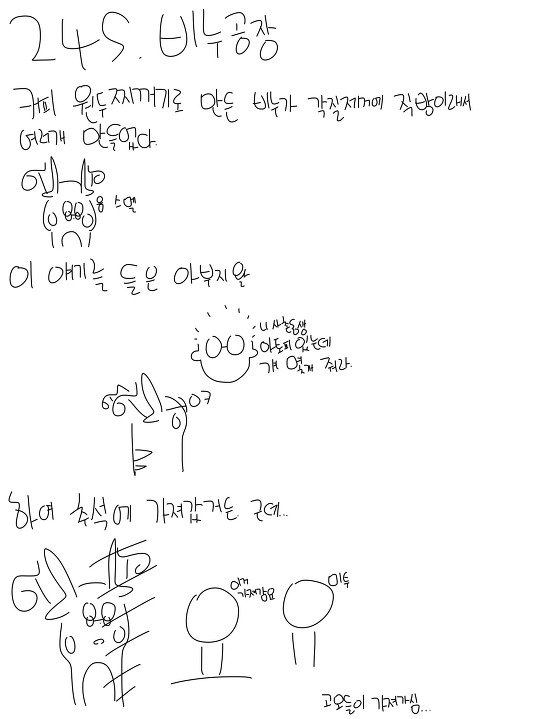 245. 비누공장
커피 원두 찌꺼기로 만든 비누가 각질제거에 직빵이래서
여러개 만들었다.
음 스멜
이 얘기를 들은 아부지왈
니 사촌동생
아토피 있는데
걔 몇개 줘라.
07
하여 추석에 가져갔거든. 근데...
이거
가져감요
미투
고모들이 가져가심...